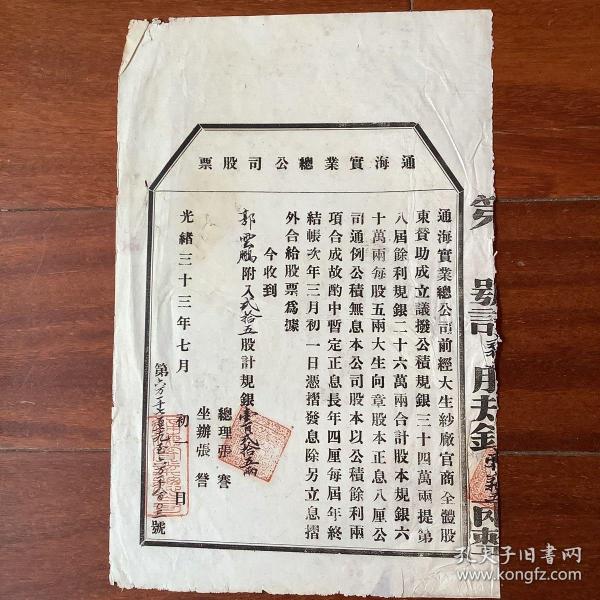 通海實業總公司股票
通海實業總公司前經大生紗廠官商全體股
東贊助成立議撥公積規銀三十四萬兩提第
八屆餘利規銀二十六萬兩合計股本規銀六
十萬兩每股五兩大生向章股本正息八厘公
司通例公積無息本公司股本以公積餘利兩
項合成故酌中暫定正息長年四厘每屆年終
結帳次年三月初一日憑摺發息除另立息摺
外合給股票爲據
今收到
郭雲鵬附入貳拾五股計規銀壹百貳拾五兩
總理張謇
坐辦張詧
光緒三十三年七月初一日
孔夫子旧书网
www.kongfz.com